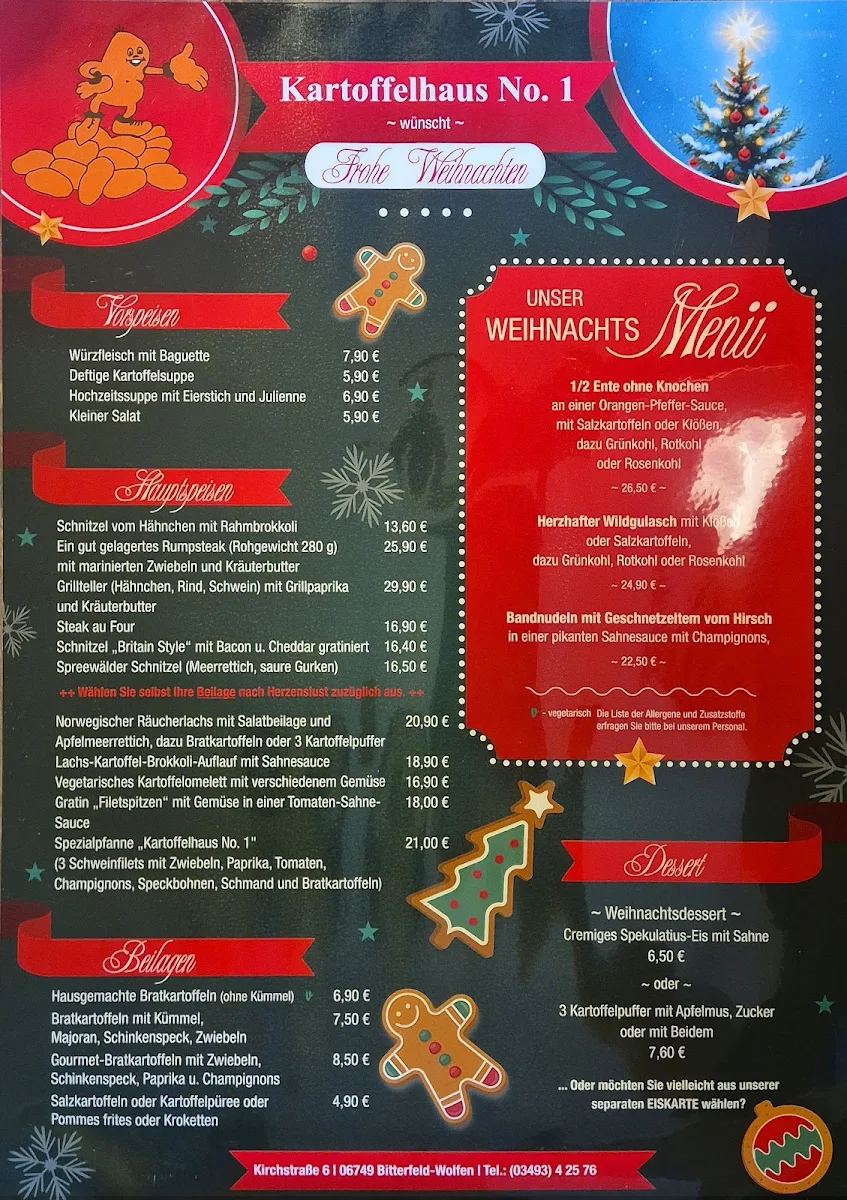 Kartoffelhaus No. 1
~ wünscht ~
Frohe Weihnachten
Vorspeisen
Würzfleisch mit Baguette 7,90 €
Deftige Kartoffelsuppe 5,90 €
Hochzeitssuppe mit Eierstich und Julienne 6,90 €
Kleiner Salat 5,90 €
Hauptspeisen
Schnitzel vom Hähnchen mit Rahmbrokkoli 13,60 €
Ein gut gelagertes Rumpsteak (Rohgewicht 280 g) 25,90 €
mit marinierten Zwiebeln und Kräuterbutter
Grillteller (Hähnchen, Rind, Schwein) mit Grillpaprika 29,90 €
und Kräuterbutter
Steak au Four 16,90 €
Schnitzel „Britain Style“ mit Bacon u. Cheddar gratiniert 16,40 €
Spreewälder Schnitzel (Meerrettich, saure Gurken) 16,50 €
++ Wählen Sie selbst Ihre Beilage nach Herzenslust zuzüglich aus. ++
Norwegischer Räucherlachs mit Salatbeilage und 20,90 €
Apfelmeerrettich, dazu Bratkartoffeln oder 3 Kartoffelpuffer
Lachs-Kartoffel-Brokkoli-Auflauf mit Sahnesauce 18,90 €
Vegetarisches Kartoffelomelett mit verschiedenem Gemüse 16,90 €
Gratin „Filetspitzen“ mit Gemüse in einer Tomaten-Sahne- 18,00 €
Sauce
Spezialpfanne „Kartoffelhaus No. 1" 21,00 €
(3 Schweinfilets mit Zwiebeln, Paprika, Tomaten,
Champignons, Speckbohnen, Schmand und Bratkartoffeln)
Beilagen
Hausgemachte Bratkartoffeln (ohne Kümmel) 6,90 €
Bratkartoffeln mit Kümmel, 7,50 €
Majoran, Schinkenspeck, Zwiebeln
Gourmet-Bratkartoffeln mit Zwiebeln, 8,50 €
Schinkenspeck, Paprika u. Champignons
Salzkartoffeln oder Kartoffelpüree oder 4,90 €
Pommes frites oder Kroketten
UNSER
WEIHNACHTS Menü
1/2 Ente ohne Knochen
an einer Orangen-Pfeffer-Sauce,
mit Salzkartoffeln oder Klößen,
dazu Grünkohl, Rotkohl
oder Rosenkohl
~ 26,50 € ~
Herzhafter Wildgulasch mit Klößen
oder Salzkartoffeln,
dazu Grünkohl, Rotkohl oder Rosenkohl
~ 24,90 € ~
Bandnudeln mit Geschnetzeltem vom Hirsch
in einer pikanten Sahnesauce mit Champignons,
~ 22,50 € ~
- vegetarisch Die Liste der Allergene und Zusatzstoffe
erfragen Sie bitte bei unserem Personal.
Dessert
~ Weihnachtsdessert ~
Cremiges Spekulatius-Eis mit Sahne
6,50 €
~ oder ~
3 Kartoffelpuffer mit Apfelmus, Zucker
oder mit Beidem
7,60 €
... Oder möchten Sie vielleicht aus unserer
separaten EISKARTE wählen?
Kirchstraße 6 I 06749 Bitterfeld-Wolfen I Tel.: (03493) 4 25 76